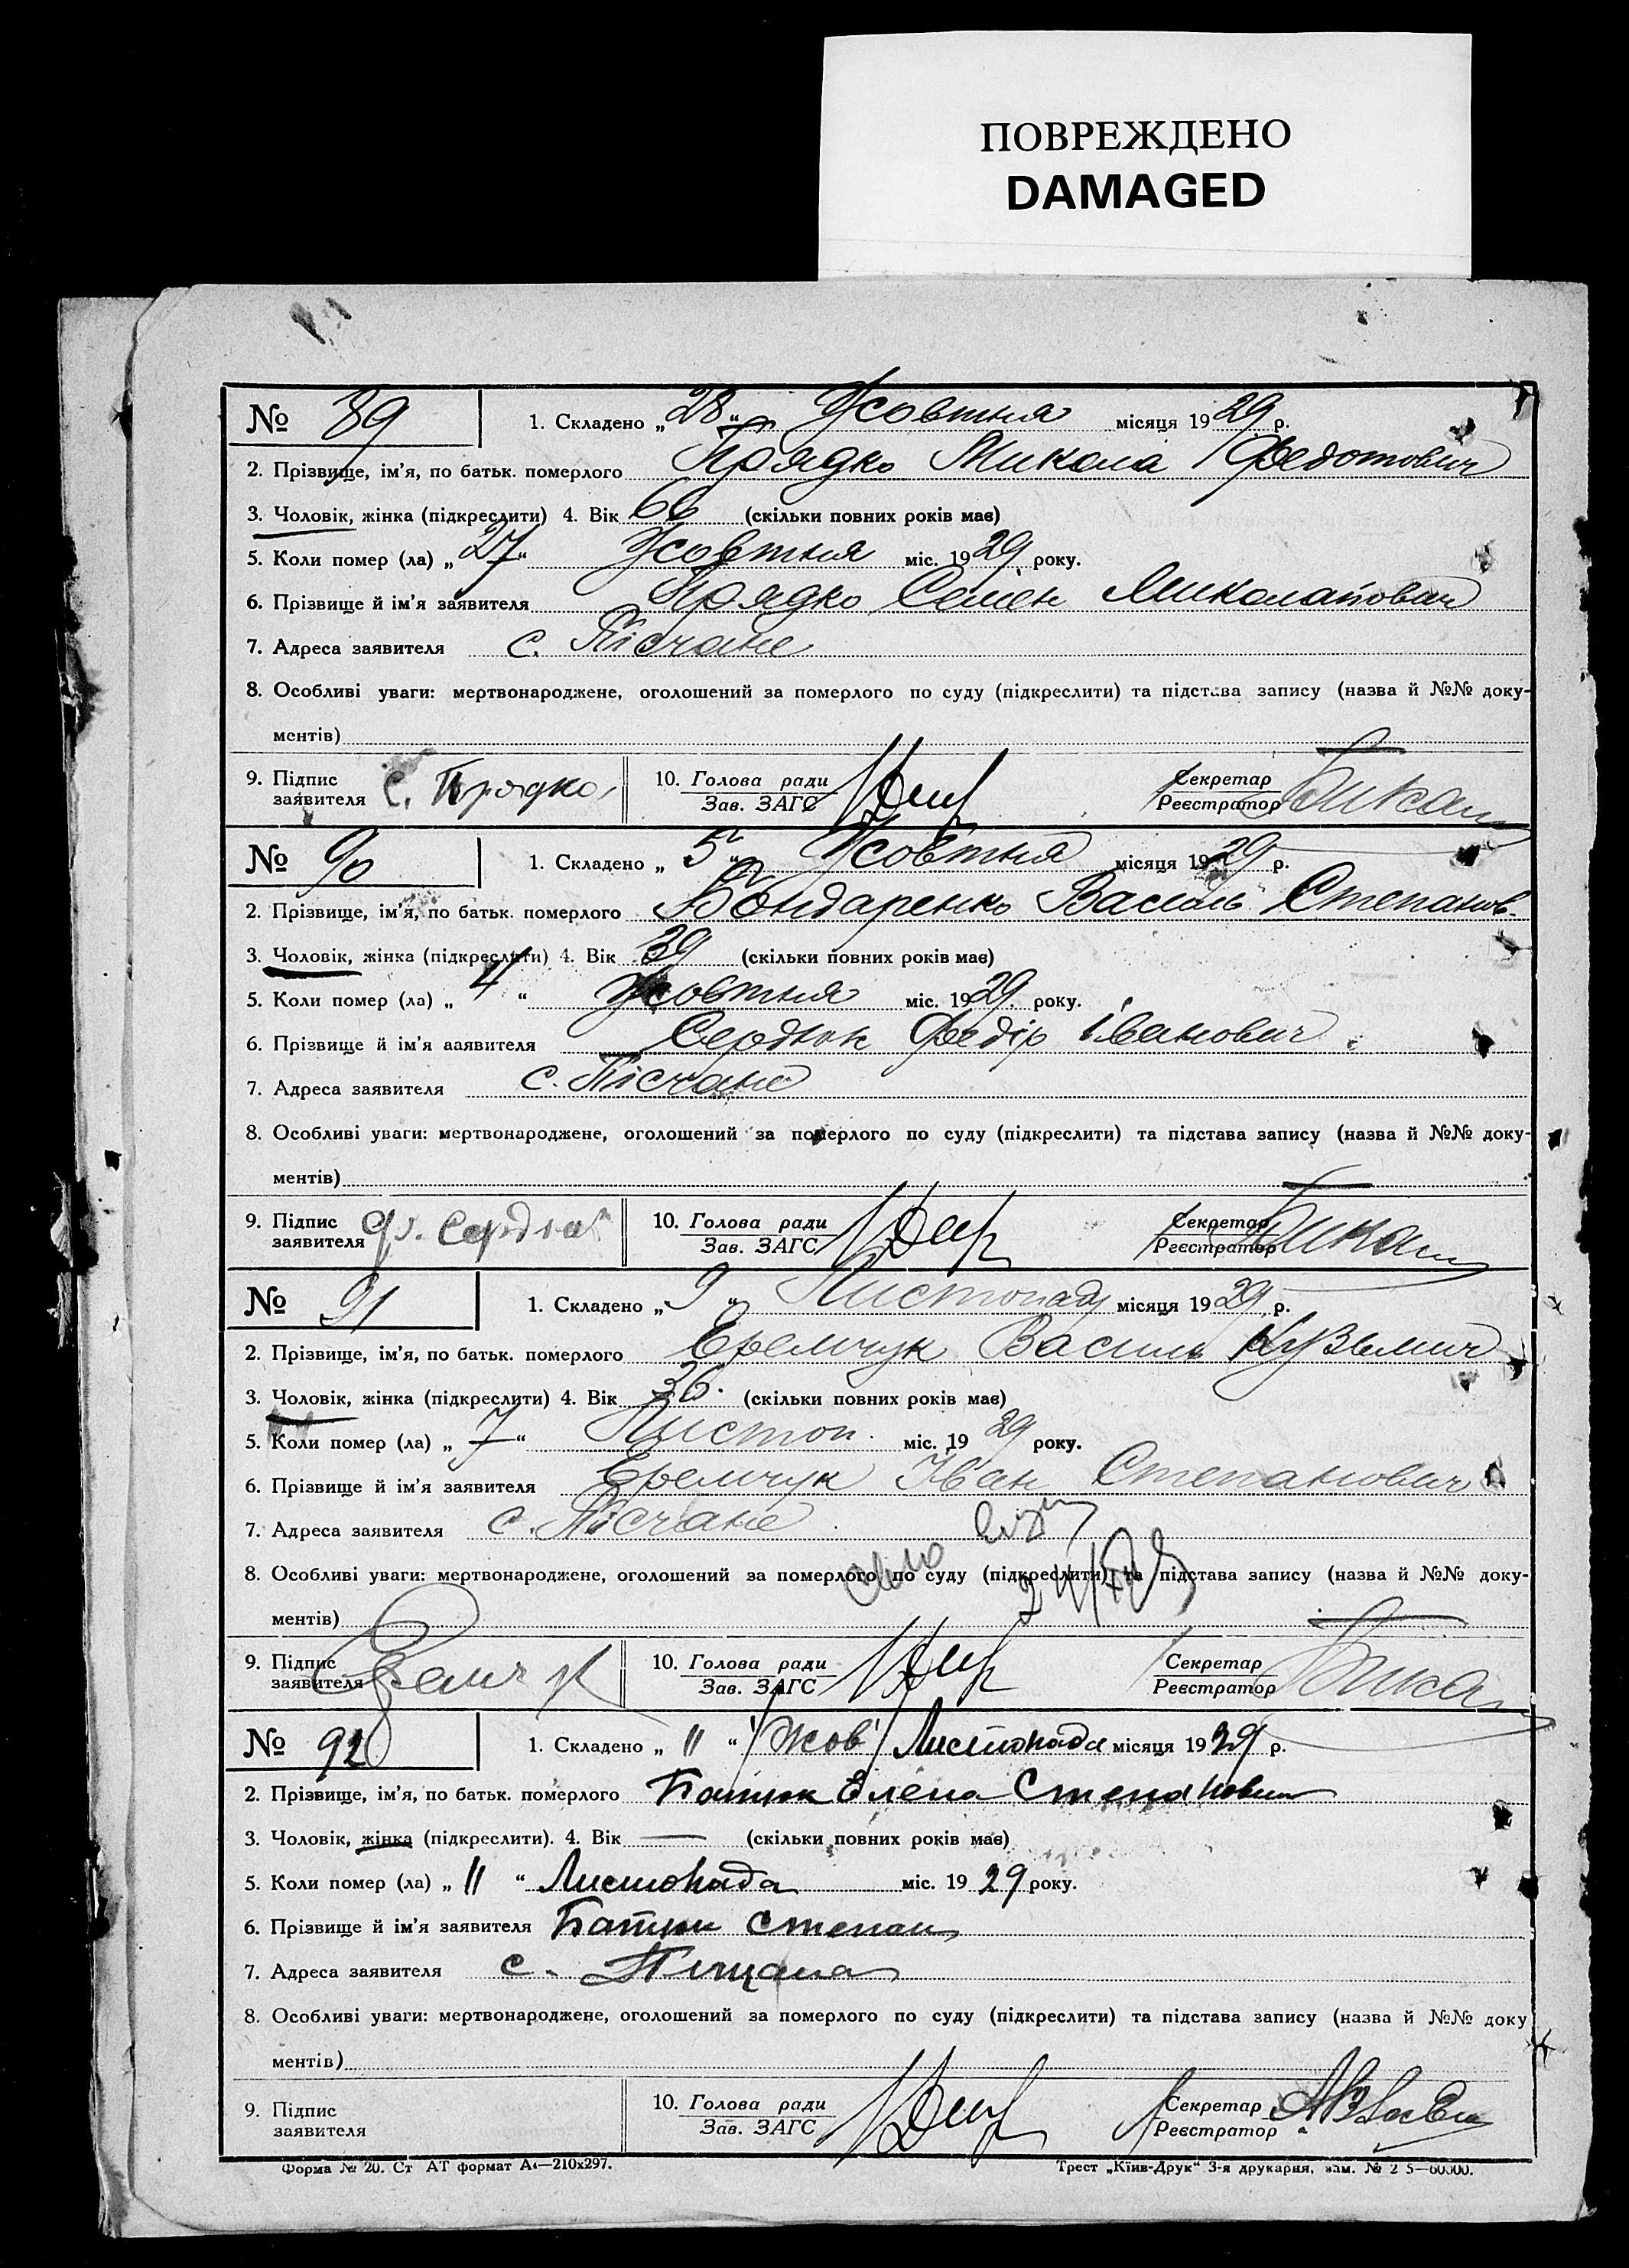 ПОВРЕЖДЕНО
DAMAGED
№ 89 1. Складено „28“ Жовтня місяця 1929 р.
2. Прізвище, ім'я, по батьк. померлого Прядко Микола Федотович
3. Чоловік, жінка (підкреслити) 4. Вік 66 (скільки повних років має)
5. Коли помер (ла) „27“ Жовтня міс. 1929 року.
6. Прізвище й ім'я заявителя Прядко Семен Миколайович
7. Адреса заявителя с. Пісчане
8. Особливі уваги: мертвонароджене, оголошений за померлого по суду (підкреслити) та підстава запису (назва й №№ доку-
ментів)
9. Підпис заявителя С. Прядко 10. Голова ради Зав. ЗАГС Секретар Реєстратор
№ 90 1. Складено „5“ Жовтня місяця 1929 р.
2. Прізвище, ім'я, по батьк. померлого Бондаренко Василь Степанов.
3. Чоловік, жінка (підкреслити) 4. Вік 39 (скільки повних років має)
5. Коли помер (ла) „4“ Жовтня міс. 1929 року.
6. Прізвище й ім'я заявителя Сердюк Федір Іванович
7. Адреса заявителя с. Пісчане
8. Особливі уваги: мертвонароджене, оголошений за померлого по суду (підкреслити) та підстава запису (назва й №№ доку-
ментів)
9. Підпис заявителя Ф. Сердюк 10. Голова ради Зав. ЗАГС Секретар Реєстратор
№ 91 1. Складено „9“ Листопаду місяця 1929 р.
2. Прізвище, ім'я, по батьк. померлого Еремчук Василь Кузьмич
3. Чоловік, жінка (підкреслити) 4. Вік 36. (скільки повних років має)
5. Коли помер (ла) „7“ Листоп. міс. 1929 року.
6. Прізвище й ім'я заявителя Еремчук Іван Степанович
7. Адреса заявителя с. Пісчане
8. Особливі уваги: мертвонароджене, оголошений за померлого по суду (підкреслити) та підстава запису (назва й №№ доку-
ментів)
9. Підпис заявителя 10. Голова ради Зав. ЗАГС Секретар Реєстратор
№ 92 1. Складено „11“ Жов Листопада місяця 1929 р.
2. Прізвище, ім'я, по батьк. померлого Батюк Елена Степановна
3. Чоловік, жінка (підкреслити). 4. Вік — (скільки повних років має)
5. Коли помер (ла) „11“ Листопада міс. 1929 року.
6. Прізвище й ім'я заявителя Батюк Степан
7. Адреса заявителя с. Піщана
8. Особливі уваги: мертвонароджене, оголошений за померлого по суду (підкреслити) та підстава запису (назва й №№ доку
ментів)
9. Підпис заявителя 10. Голова ради Зав. ЗАГС Секретар Реєстратор
Форма № 20. Ст АТ формат А4—210х297. Трест „Київ-Друк“ 3-я друкарня, зам. №